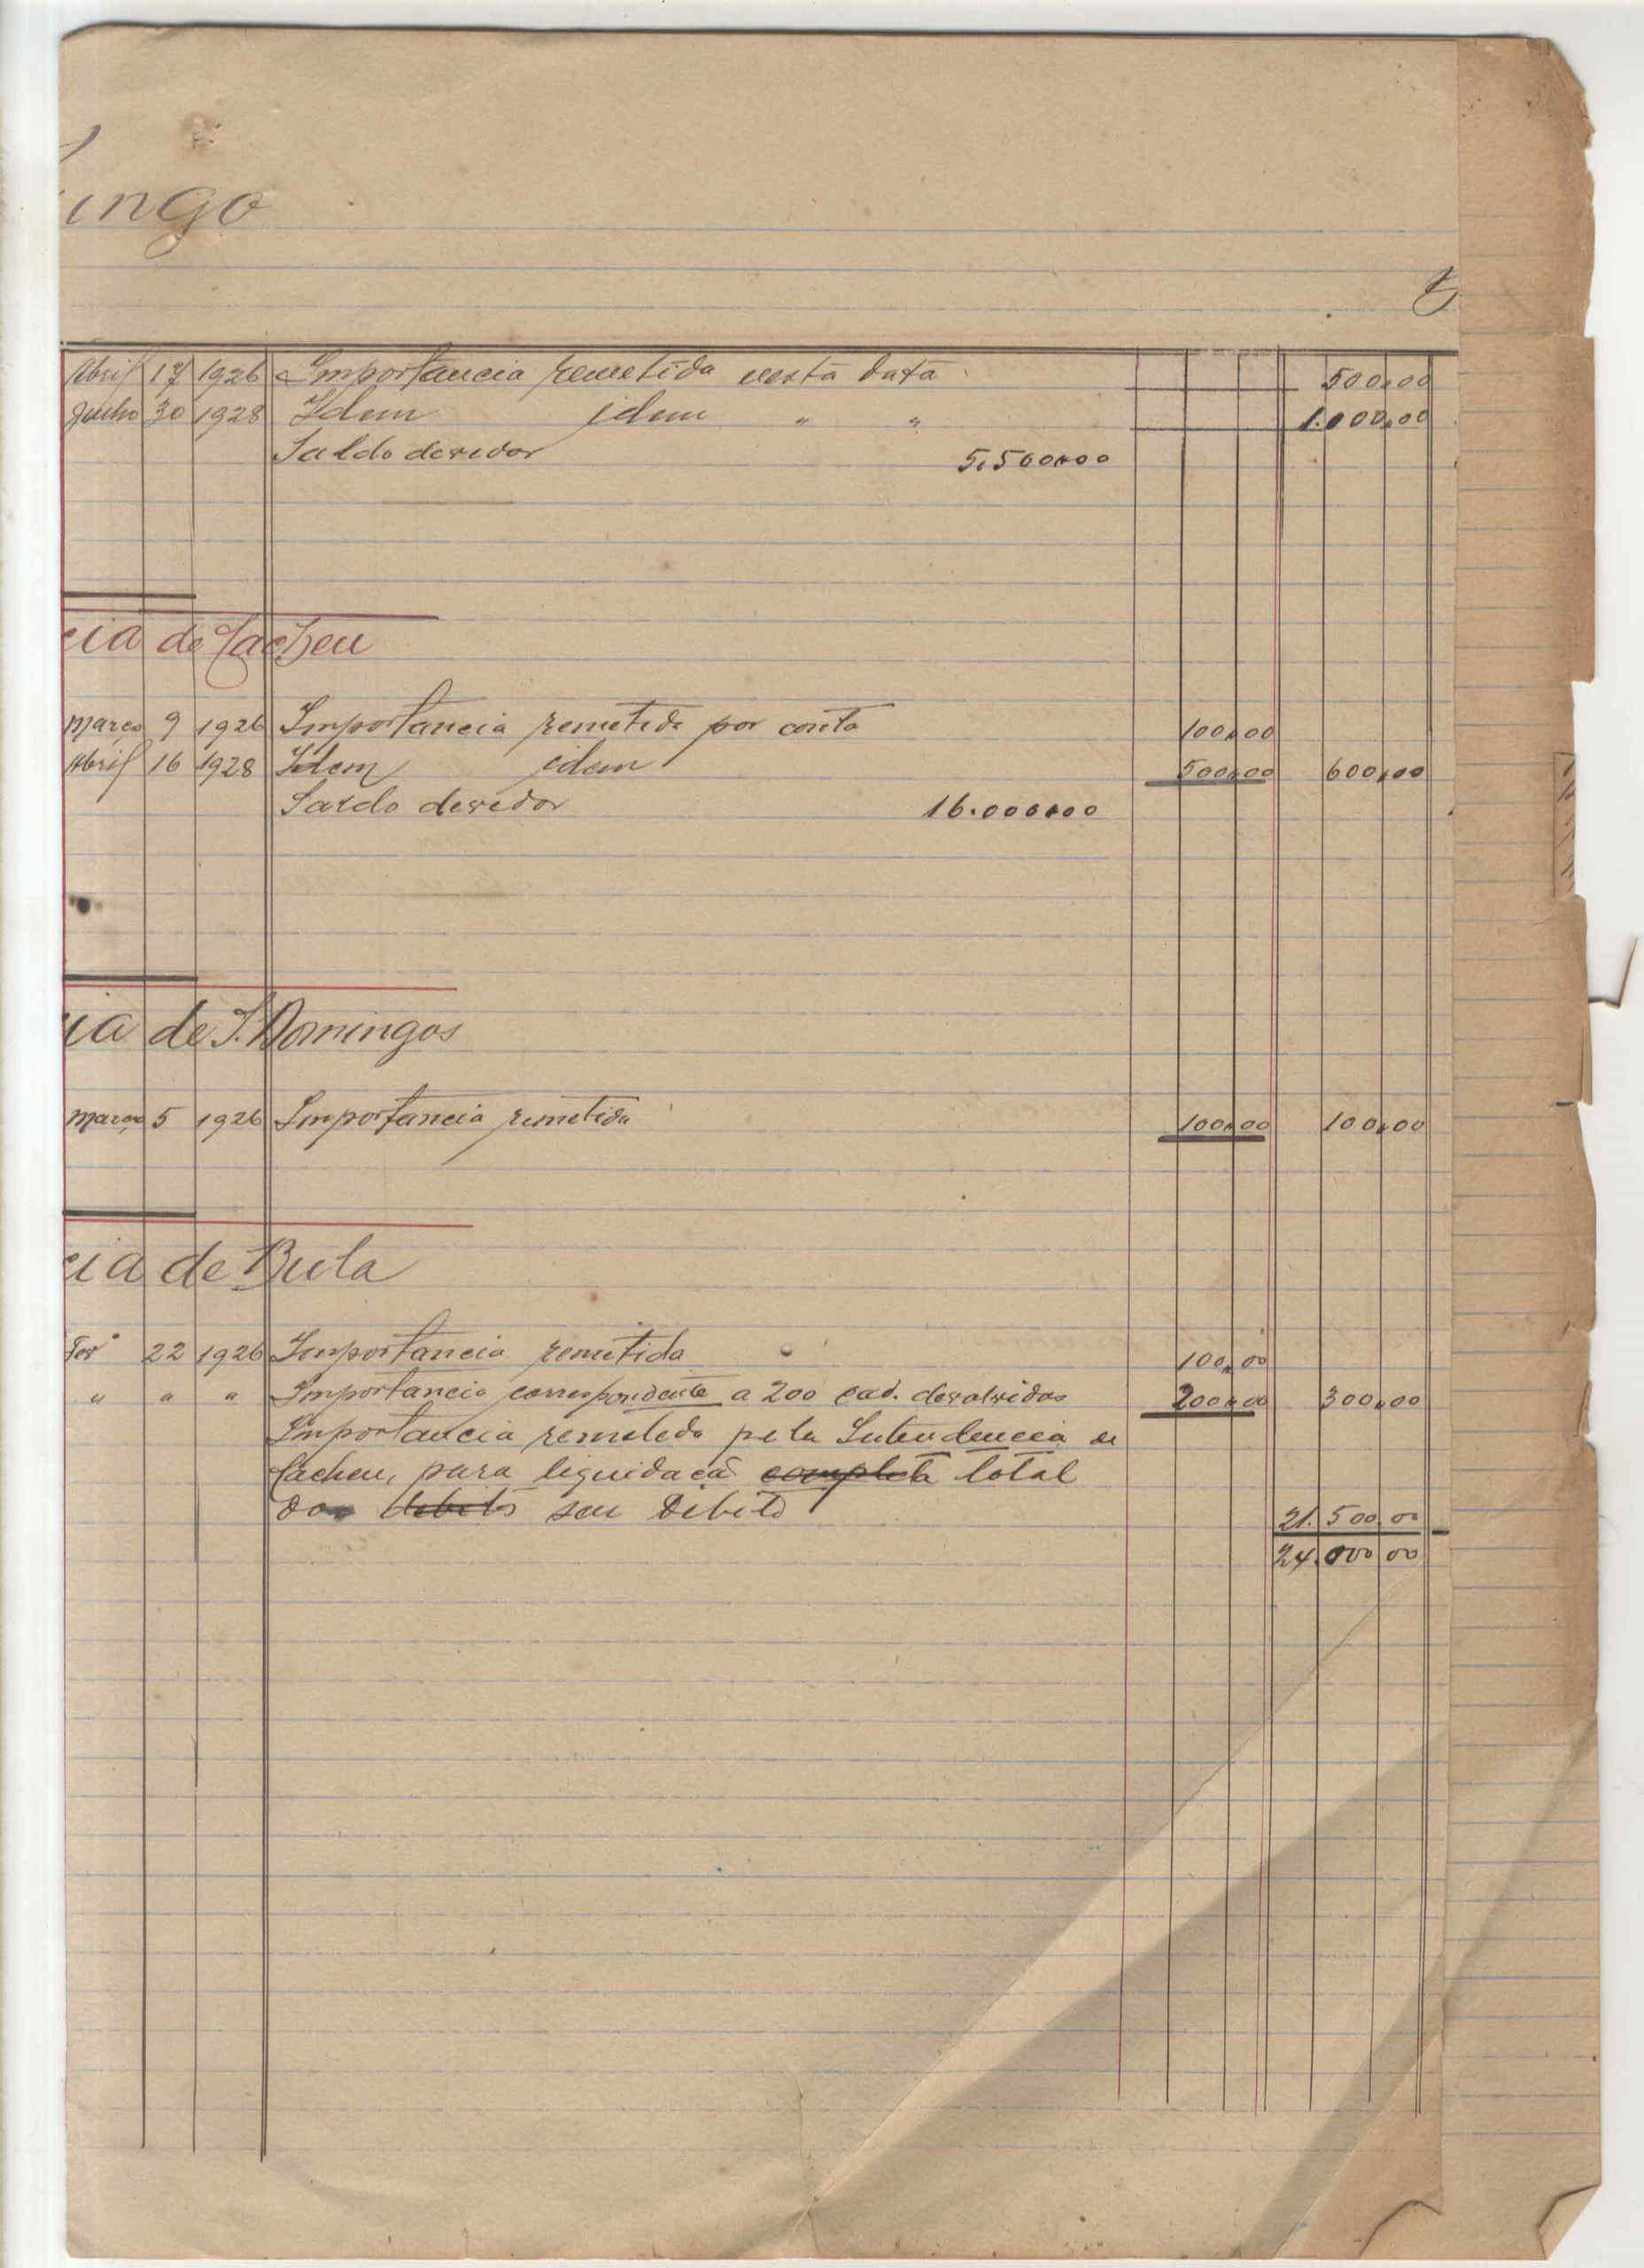 ungo
Abril 17 1926 Importancia remetida nesta data 500,00
Junho 30 1928 Idem idem " " 1.000,00
Saldo devedor 5.500,00
cia de Cacheu
Março 9 1926 Importancia remetida por conta 100,00
Abril 16 1928 Idem idem 500,00 600,00
Saldo devedor 16.000,00
cia de S. Domingos
Março 5 1926 Importancia remetida 100,00 100,00
cia de Bula
Fevº 22 1926 Importancia remetida 100,00
" " " Importancia correspondente a 200 cad. devolvidas 200,00 300,00
Importancia remetida pela Intendencia de
Cacheu, para liquidação completa total
do debito seu debito 21.500,00
24.000,00